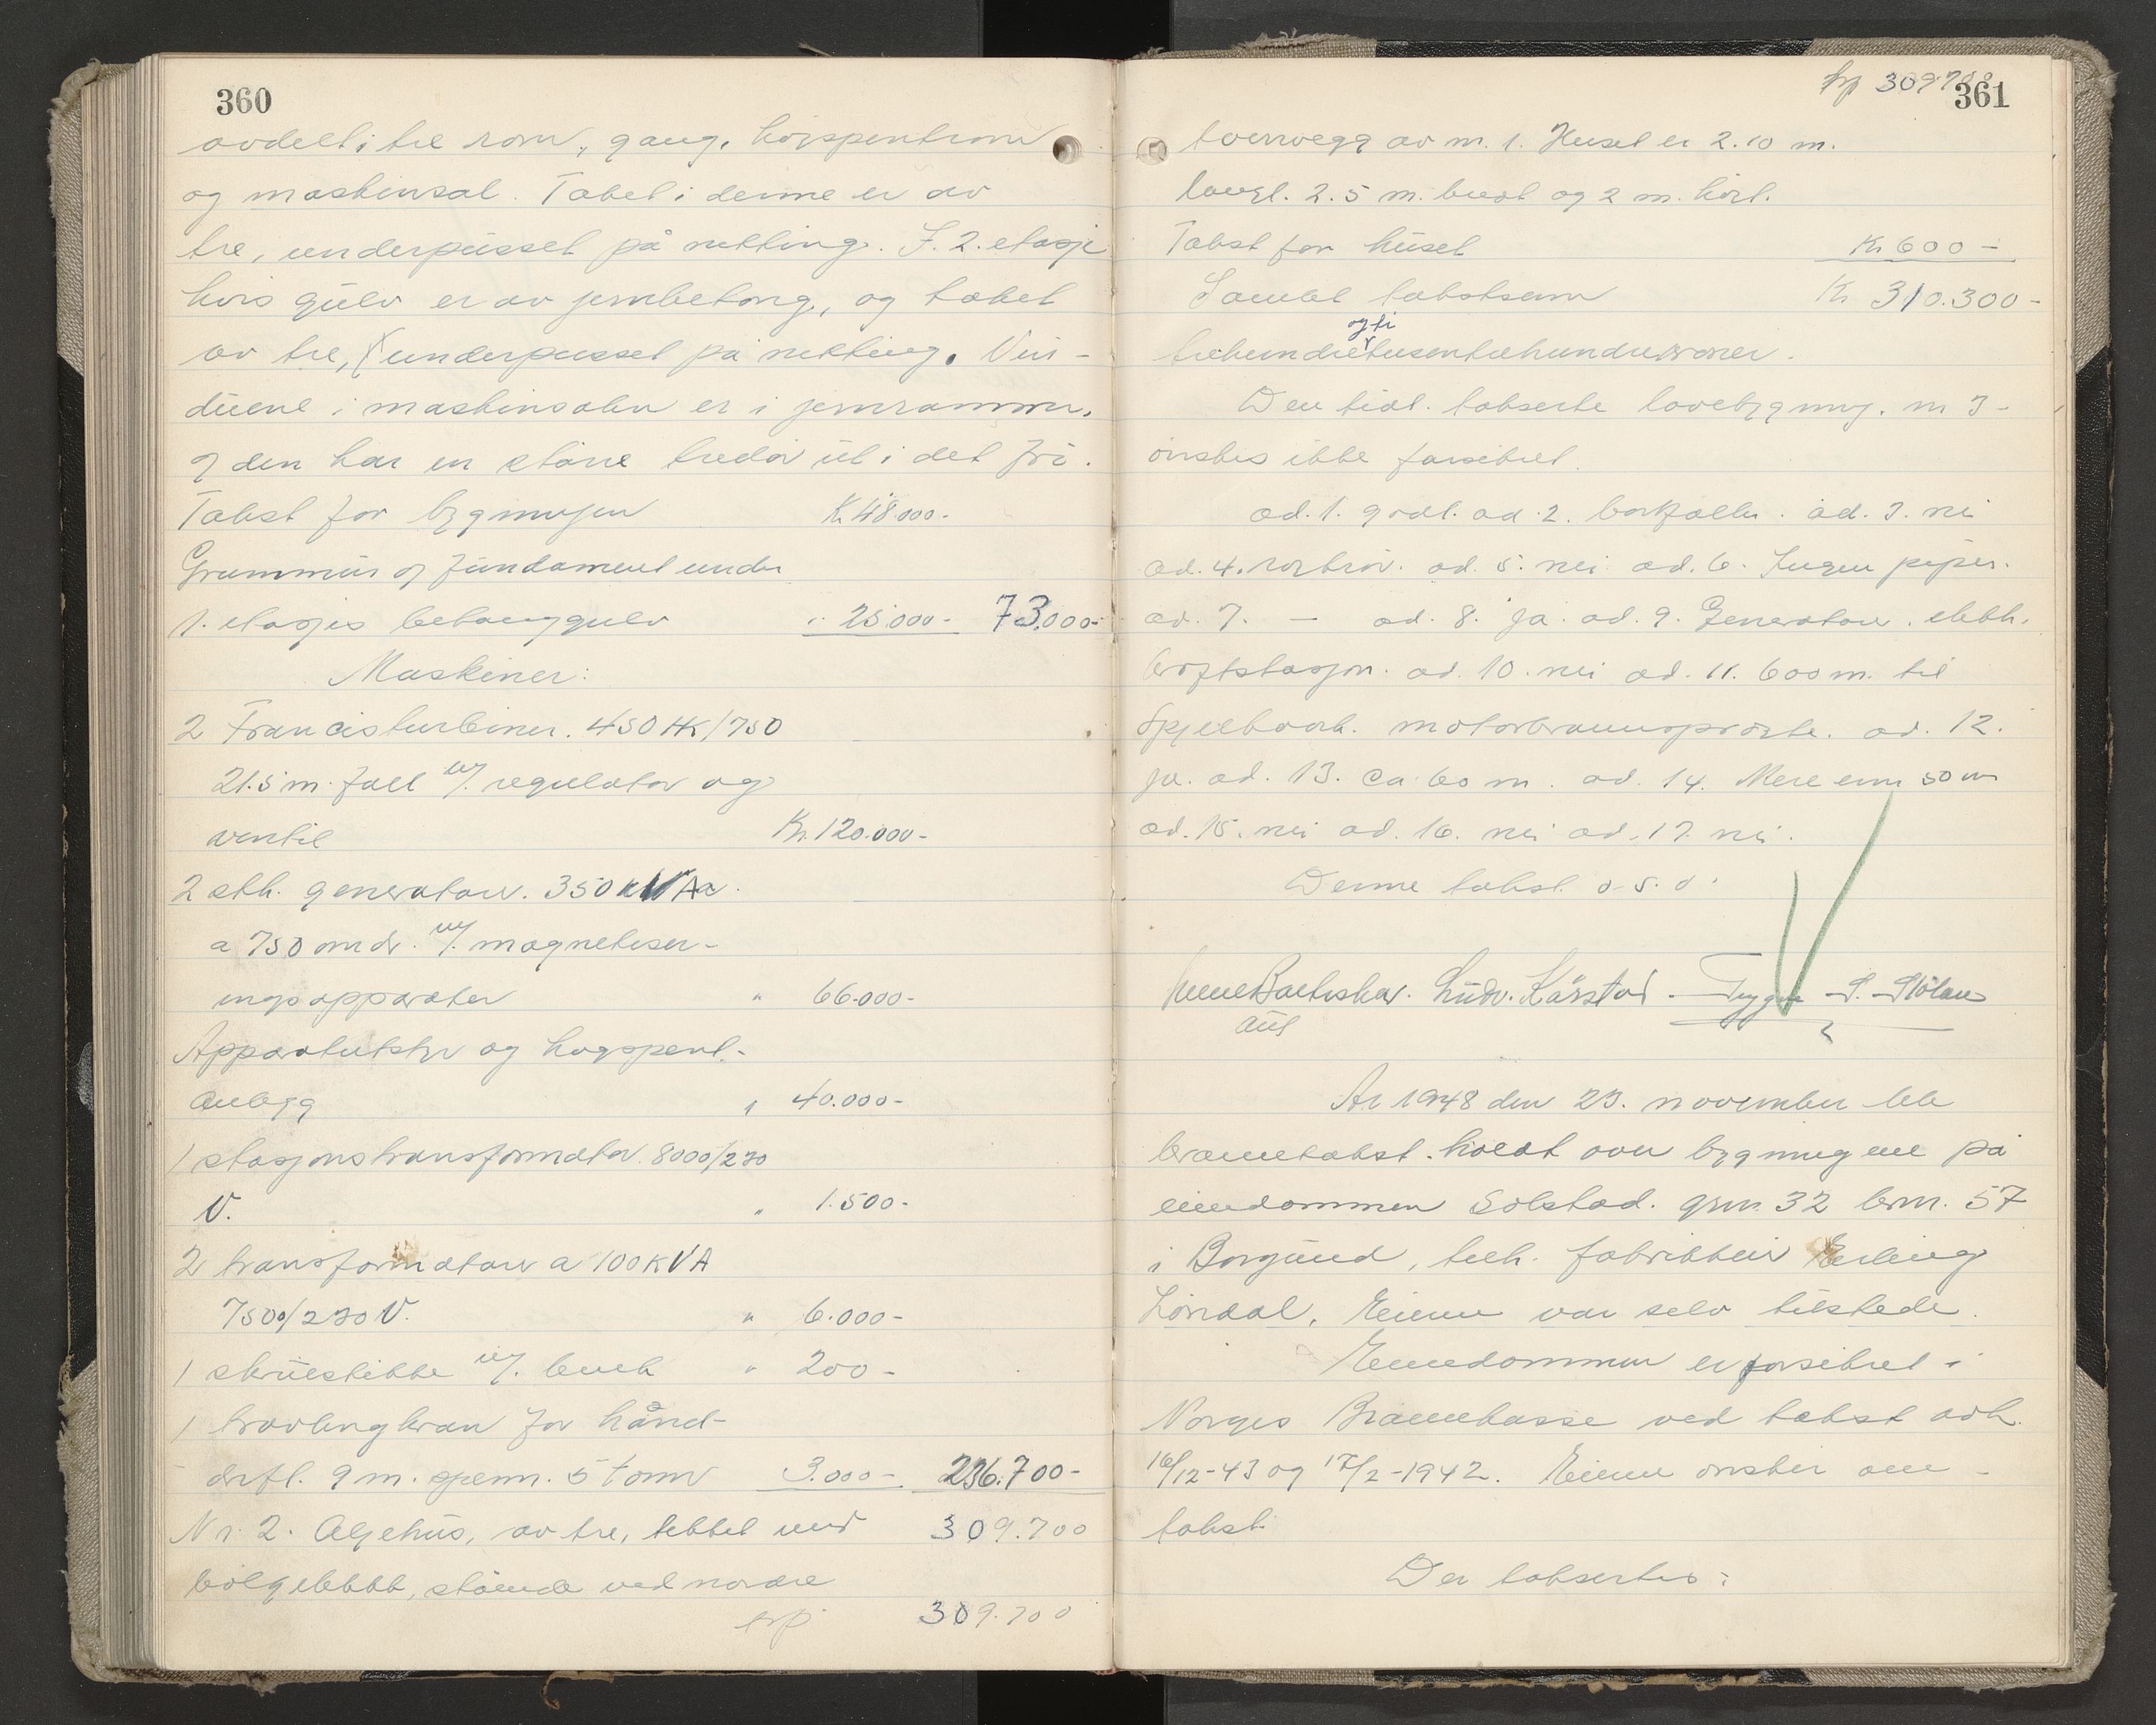 360
avdelt i tre rom, gang, høispentrom
og maskinsal. Taket i denne er av
tre, underpusset på netting. I. 2. etasje
hvis gulv er av jernbetong, og taket
av tre, underpusset på netting. Vin-
duene i maskinsalen er i jernrammer.
og den har en større tredør ut i det fri.
Takst for bygningen Kr 48.000.-
Grunnmur og fundament under
1. etasjes betonggulv " 25.000- 73.000-
Maskiner:
2 Francisturbiner. 450 HK/750
21.5 m. fall m/. regulator og
ventil Kr. 120.000-
2 stk. generatorer. 350 KVA
a 750 omdr. m/. magnetiser-
ingsapparater " 66.000-
Apparatutstyr og høgspent-
anlegg " 40.000-
1 stasjonstransformator. 8000/230
V. " 1.500-
2 transformatorer a 100 KVA
7500/230 V. " 6.000-
1 skruestikke m/. benk " 200-
1 travlingkran for hånd-
drift. 9 m. spenn. 5 tonn 3.000- 236.700-
Nr. 2. Oljehus, av tre, tekket med 309.700
bølgeblekk, stående ved nordre
trp 309.700
trp 309700
361
tverrvegg av nr. 1. Huset er 2.10 m.
langt. 2.5 m. bredt og 2 m. høit.
Takst for huset Kr 600-
Samlet takstsum Kr 310.300-
og ti
trehundretusentrehundrekroner.
Den tidl. takserte lavebygning. nr 3-
ønskes ikke forsikret.
ad. 1. godt. ad. 2. bortfaller. ad. 3. nei
ad. 4. ad. 5. nei ad. 6. Ingen piper.
ad. 7. — ad. 8. ja. ad. 9. Generatorer. elekk.
kraftstasjon. ad. 10. nei ad. 11. 600 m. til
Spjelkavik. motorbrannsprøite. ad. 12.
ja. ad. 13. Ca 60 m. ad. 14. Mere enn 50 m
ad. 15. nei ad. 16. nei ad. 17. nei.
Denne takst o. s. v.
Ludv. Kårstad - Trygve
År 1948 den 23. november ble
brannetakst holdt over bygningene på
eiendommen Solstad. grn. 32 brn. 57
i Borgund, tilh. fabrikkeier Erling
Løvdal. Eieren var selv tilstede.
Eiendommen er forsikret i
Norges Brannekasse ved takst avh.
16/12-43 og 17/2-1942. Eieren ønsker om-
takst.
Der taksertes: